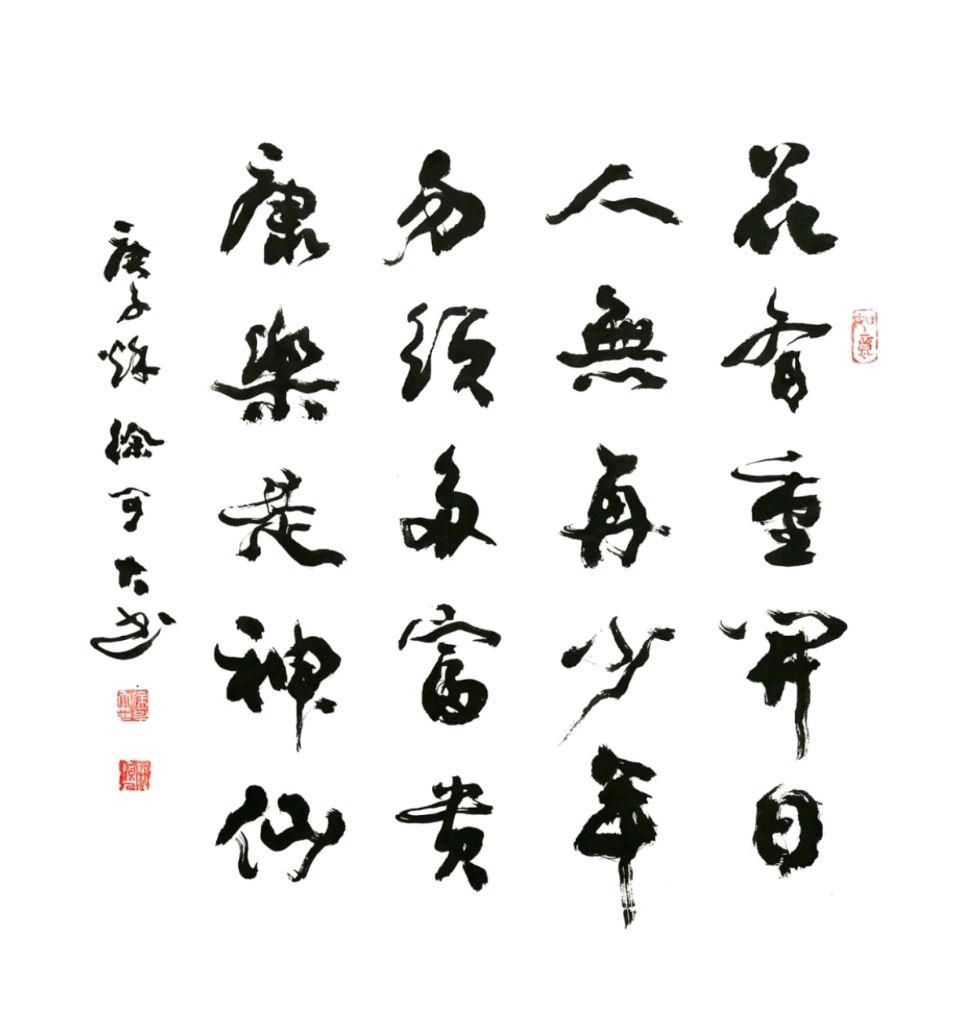 花有重開日
人無再少年
勿須多富貴
康樂是神仙
庚子秋 徐可大书
如意